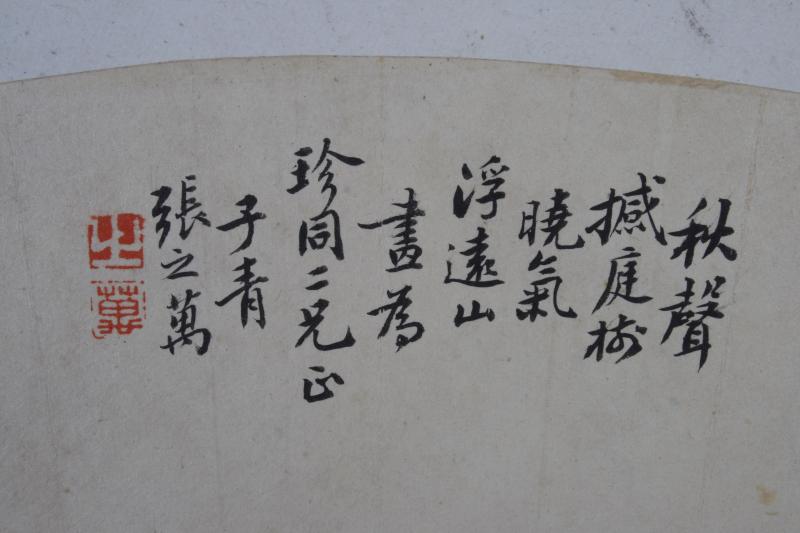 秋聲
撼庭樹
曉氣
浮遠山
畫為
珍同二兄正
子青
張之萬
之
萬